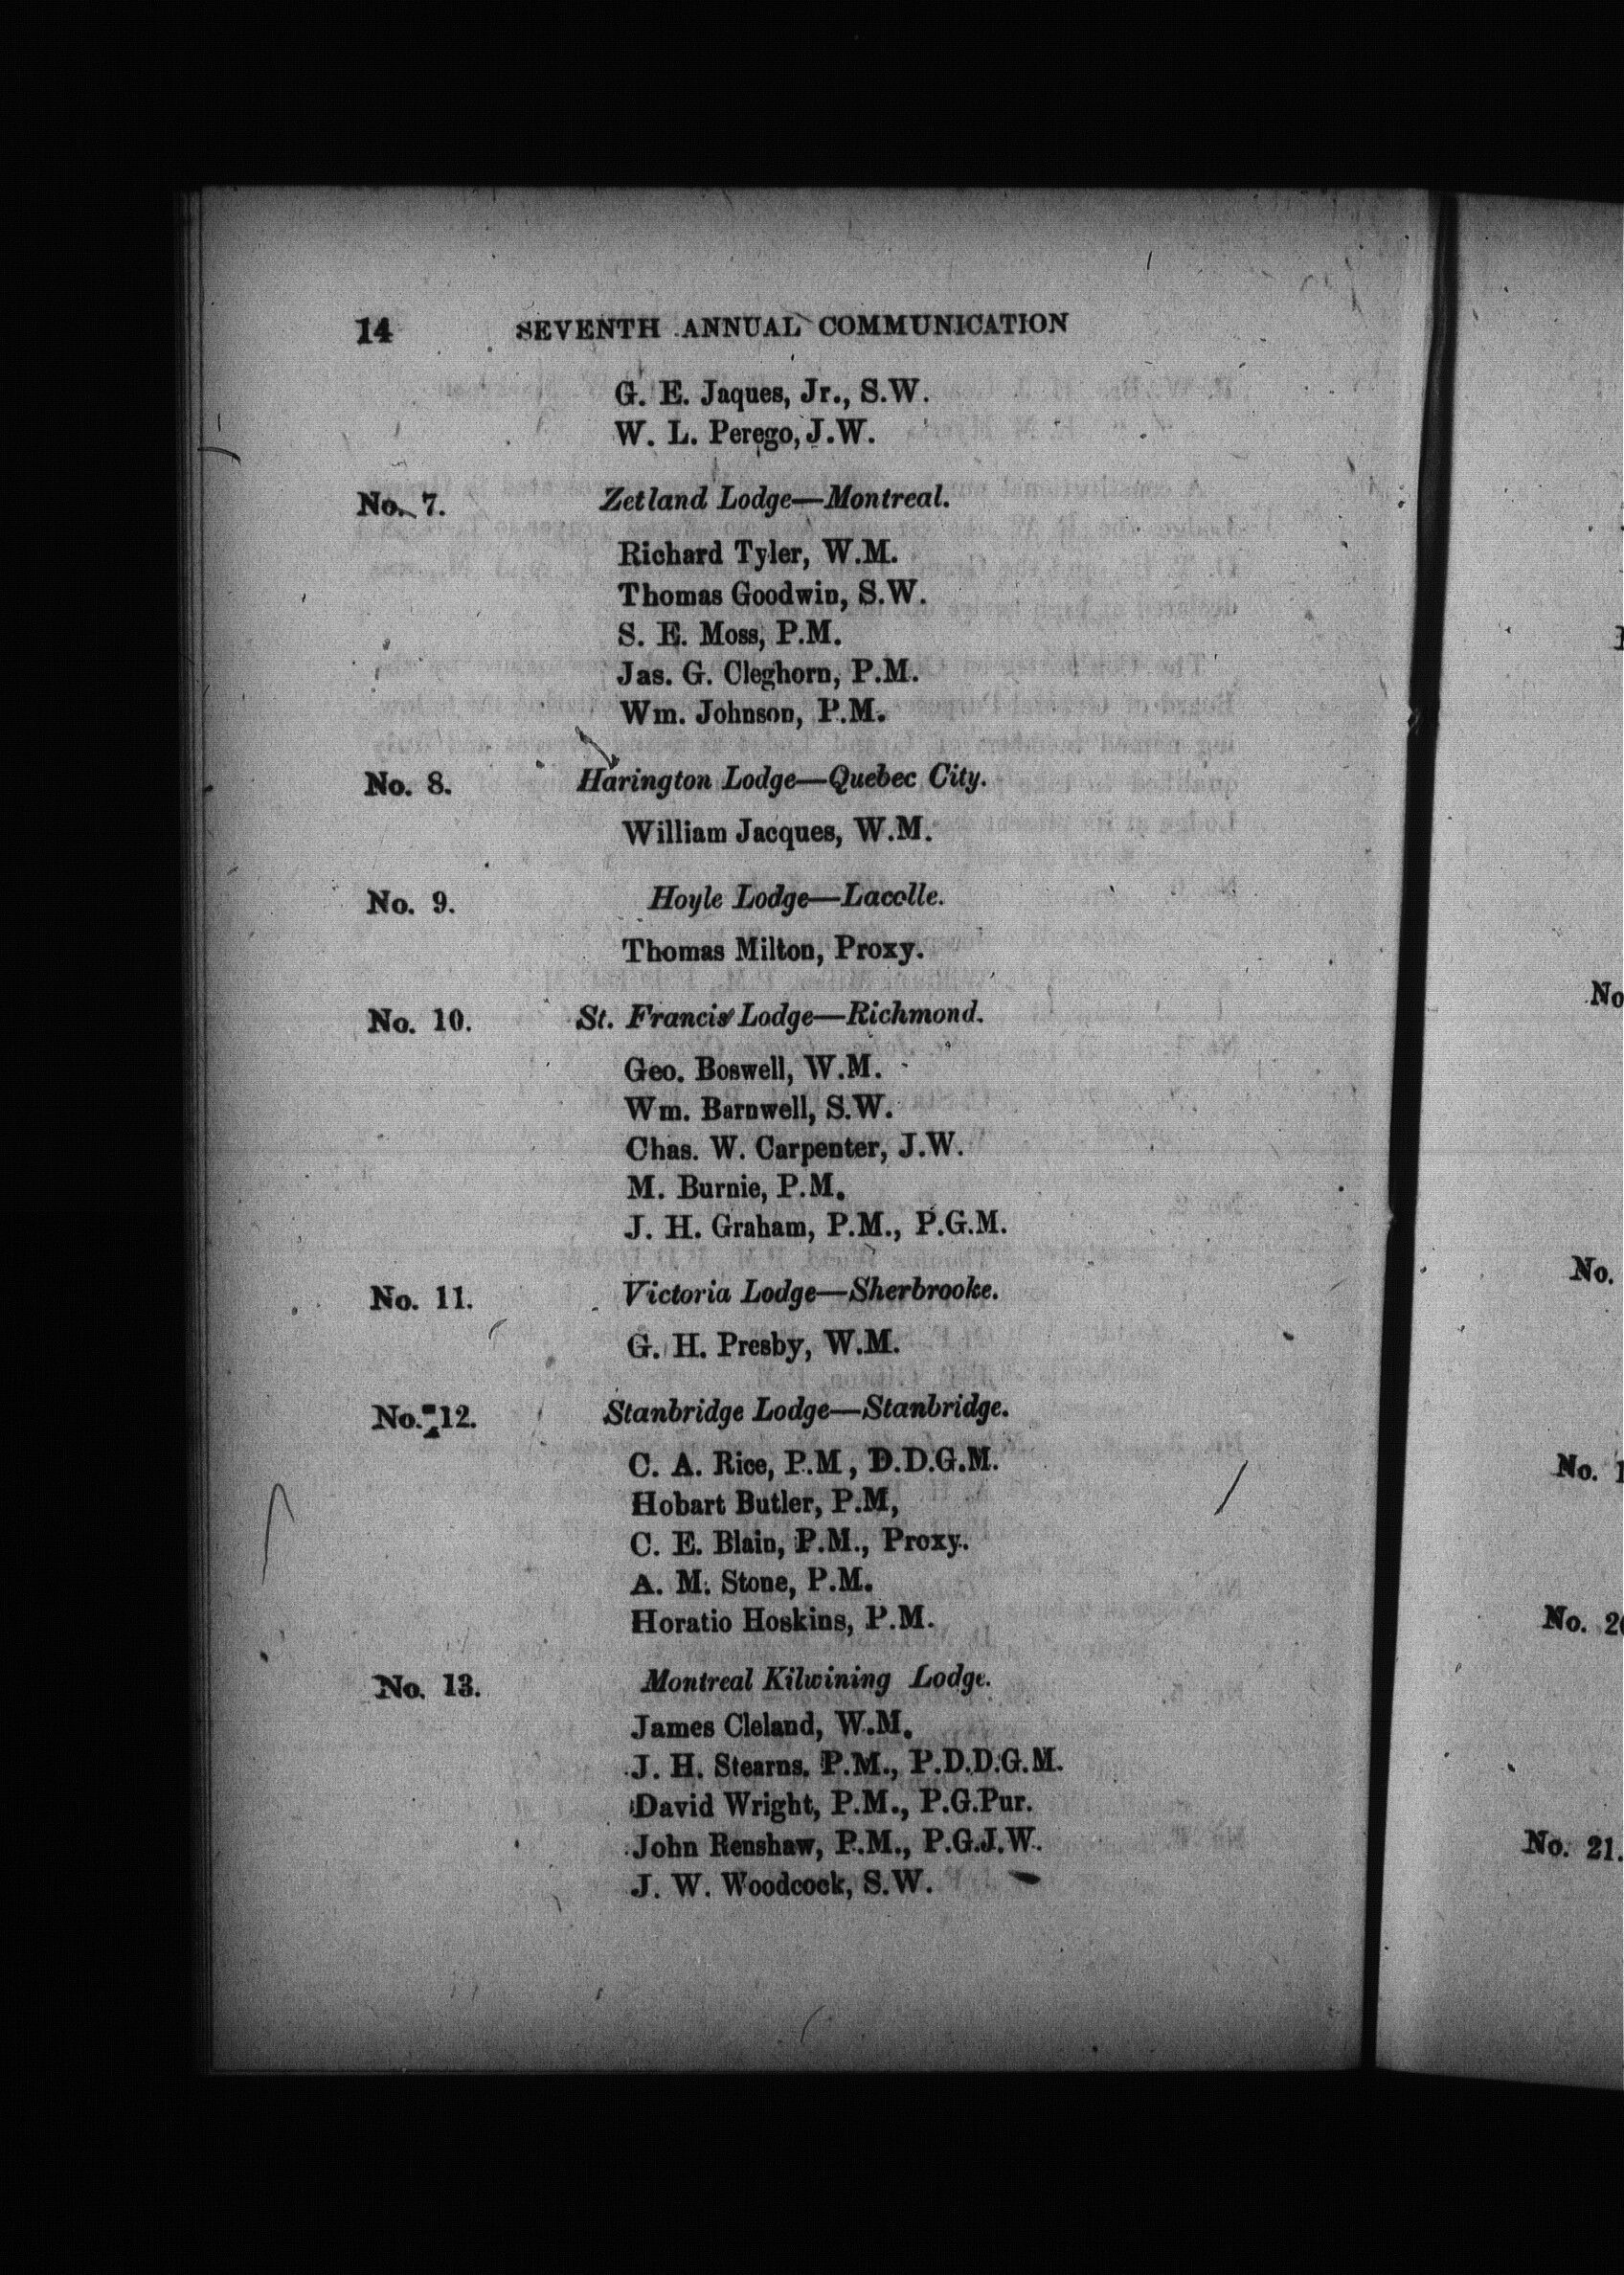 14 SEVENTH ANNUAL COMMUNICATION
G. E. Jaques, Jr., S.W.
W. L. Perego, J.W.
No. 7. Zetland Lodge—Montreal.
Richard Tyler, W.M.
Thomas Goodwin, S.W.
S. E. Moss, P.M.
Jas. G. Cleghorn, P.M.
Wm. Johnson, P.M.
No. 8. Harington Lodge—Quebec City.
William Jacques, W.M.
No. 9. Hoyle Lodge—Lacolle.
Thomas Milton, Proxy.
No. 10. St. Francis Lodge—Richmond.
Geo. Boswell, W.M.
Wm. Barnwell, S.W.
Chas. W. Carpenter, J.W.
M. Burnie, P.M.
J. H. Graham, P.M., P.G.M.
No. 11. Victoria Lodge—Sherbrooke.
G. H. Presby, W.M.
No. 12. Stanbridge Lodge—Stanbridge.
C. A. Rice, P.M, D.D.G.M.
Hobart Butler, P.M,
C. E. Blain, P.M., Proxy.
A. M. Stone, P.M.
Horatio Hoskins, P.M.
No. 13. Montreal Kilwining Lodge.
James Cleland, W.M.
J. H. Stearns. P.M., P.D.D.G.M.
David Wright, P.M., P.G.Pur.
John Renshaw, P.M., P.G.J.W.
J. W. Woodcock, S.W.
No
No.
No. 1
No. 2
No. 21.